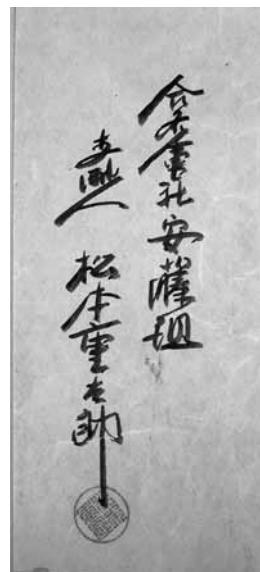 合資會社安藤組
支配人 松本重太郎